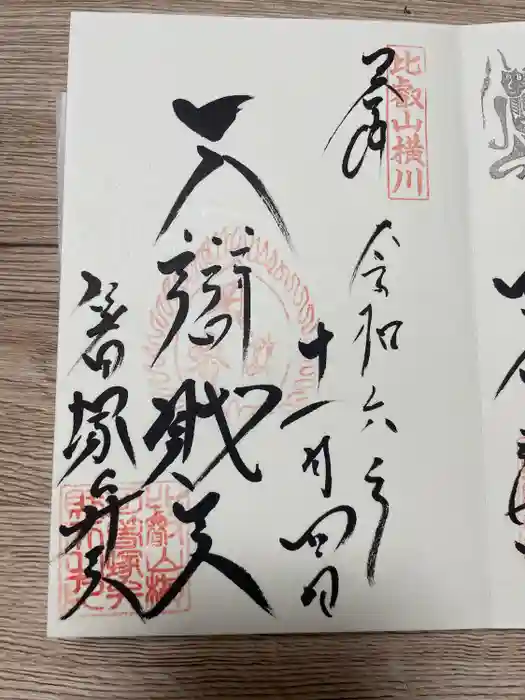 比叡山横川
奉
令和六年
十一月四日
大辯財天
箸塚弁天